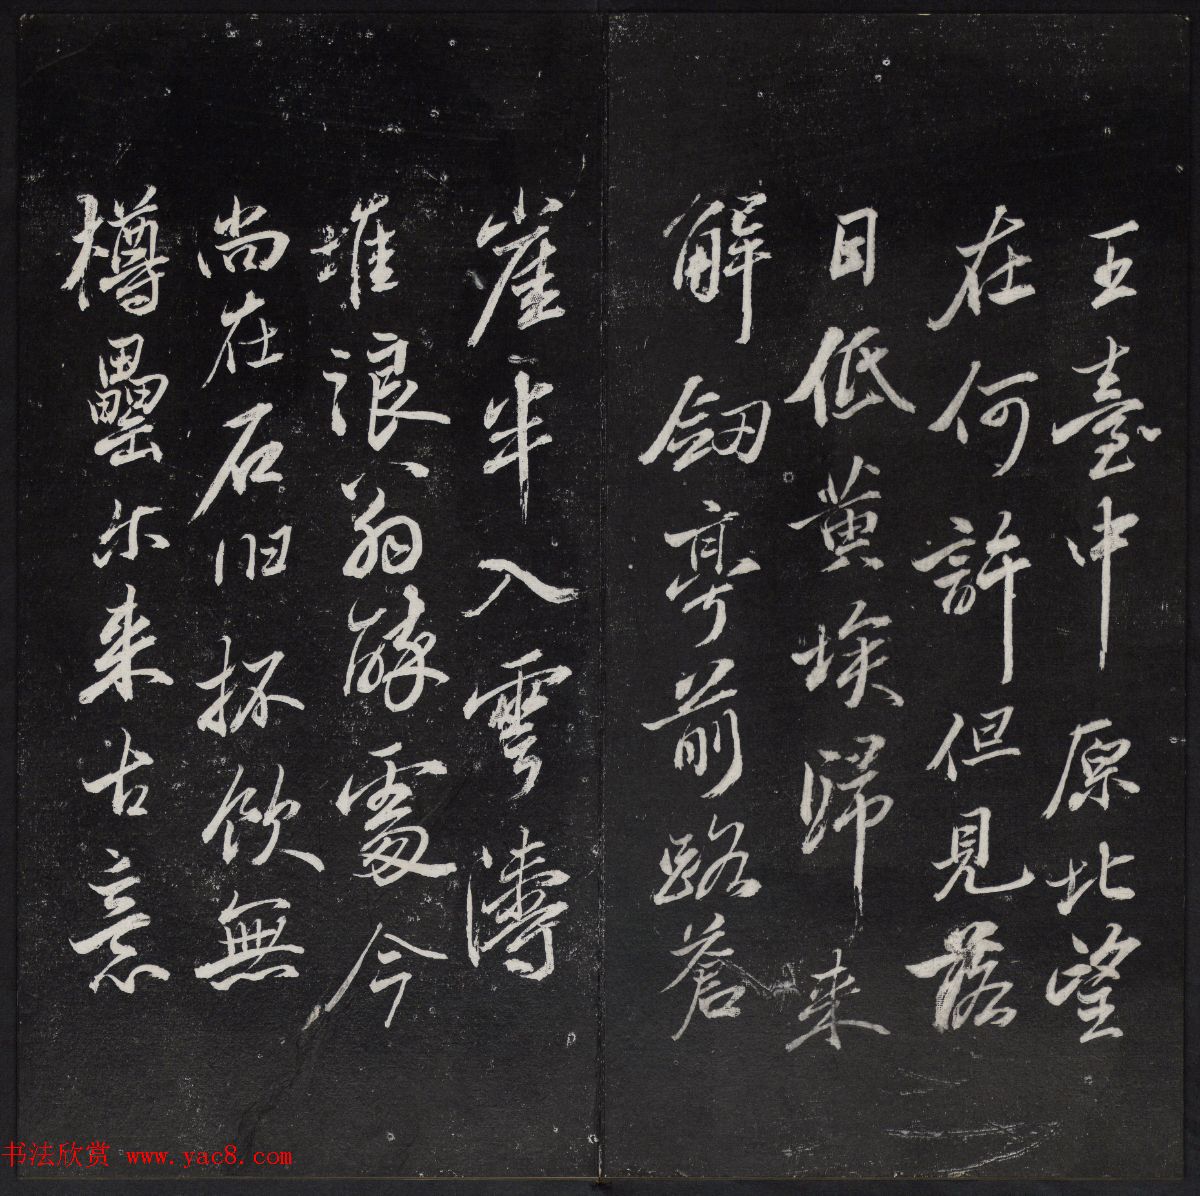 王臺中原北望
在何許但見落
日低黄埃歸来
解劔亭前路蒼
崖半入雲濤
堆浪翁醉處今
尚在石旧抔飲無
樽罍尓来古意
书法欣赏 www.yac8.com